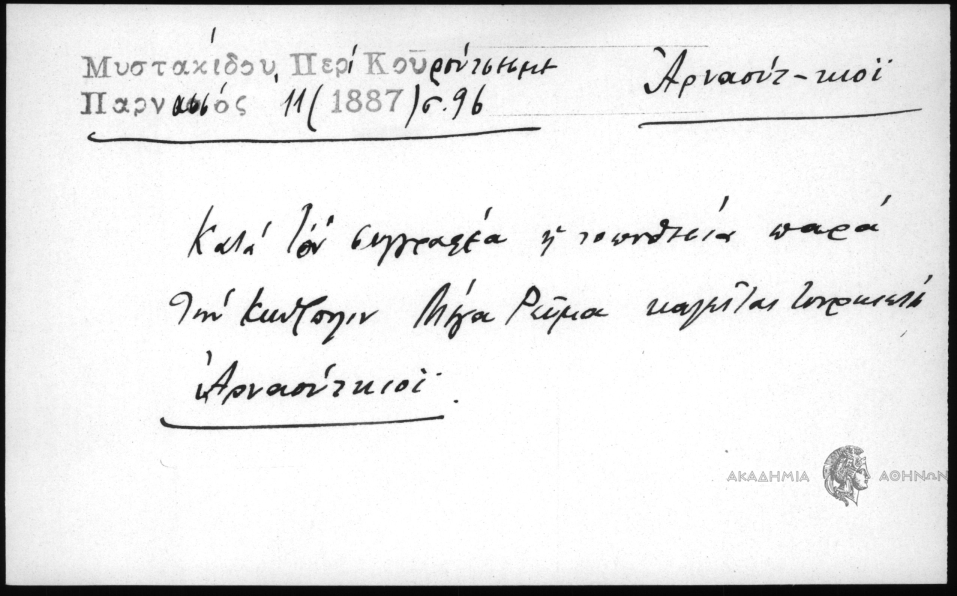 Μυστακίδου, Περί Κουρούτσεσμε
Ἀρναούτ-κιοϊ
Παρνασσός 11 (1887) σ. 96
Κατά τόν συγγραφέα ἡ τοποθεσία παρά
τήν Κωνπολιν Μέγα Ρεῦμα καλεῖται τουρκιστί
Ἀρναούτκιοϊ.
ΑΚΑΔΗΜΙΑ ΑΘΗΝΩΝ